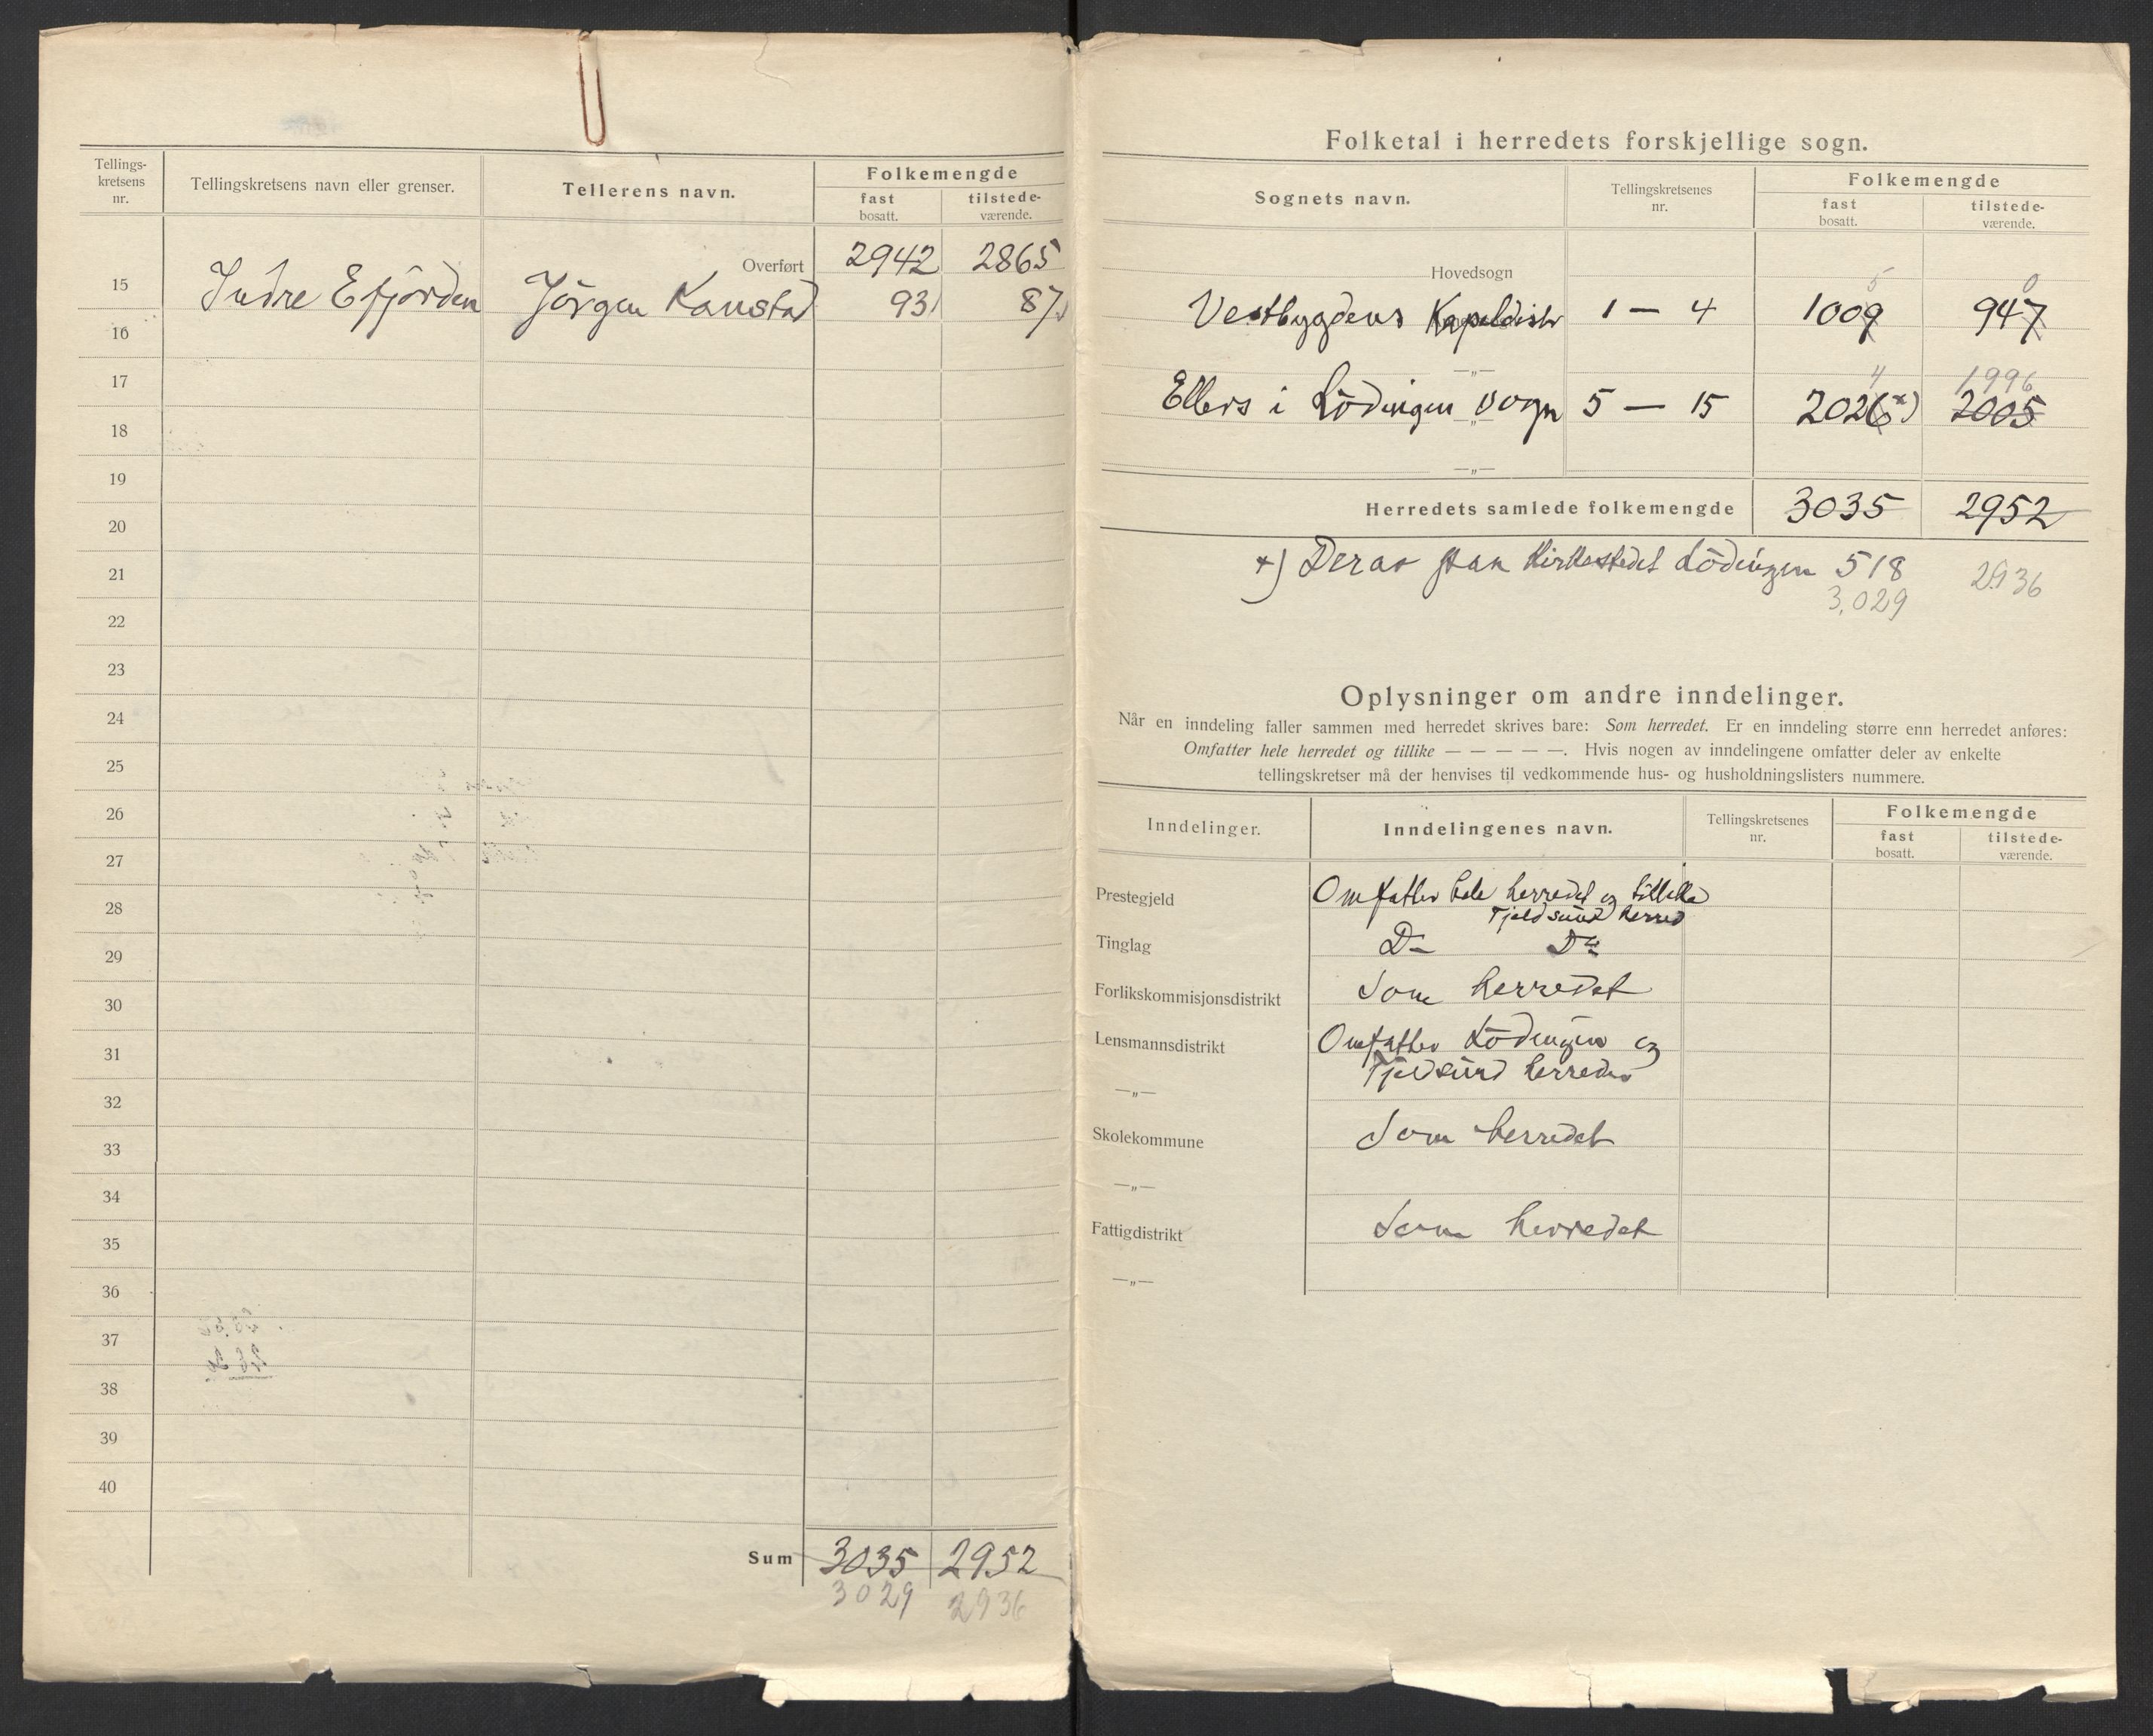 Tellings-
kretsens
nr.
Tellingskretsens navn eller grenser.
Tellerens navn.
Folkemengde
fast
bosatt.
tilstede-
værende.
Overført 2942 2865
15 Indre Efjorden Jörgen Kanstad 93 87
16
17
18
19
20
21
22
23
24
25
26
27
28
29
30
31
32
33
34
35
36
37
38
39
40
Sum 3035 2952
3029 2936
Folketal i herredets forskjellige sogn.
Sognets navn.
Tellingskretsenes
nr.
Folkemengde
fast
bosatt.
tilstede-
værende.
Hovedsogn
5 0
Vestbygdens Kapeldistr 1 — 4 1009 947
—„—
4 1996
Ellers i Lödingen sogn 5 — 15 2026*) 2005
—„—
—„—
Herredets samlede folkemengde 3035 2952
*) Derav paa Kirkestedet Lödingen 518 2936
3.029
Oplysninger om andre inndelinger.
Når en inndeling faller sammen med herredet skrives bare: Som herredet. Er en inndeling større enn herredet anføres:
Omfatter hele herredet og tillike — — — — —. Hvis nogen av inndelingene omfatter deler av enkelte
tellingskretser må der henvises til vedkommende hus- og husholdningslisters nummere.
Inndelinger.
Inndelingenes navn.
Tellingskretsenes
nr.
Folkemengde
fast
bosatt.
tilstede-
værende.
Prestegjeld Omfatter hele herredet og tillike
Tjeldsund herred
Tinglag Do Do
Forlikskommisjonsdistrikt Som herredet
Lensmannsdistrikt Omfatter Lödingen og
Tjeldsund herreder
—„—
Skolekommune Som herredet
—„—
Fattigdistrikt Som herredet
—„—